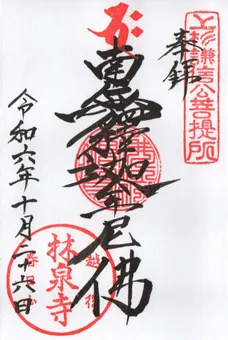 上杉謙信公菩提所
奉拝
南無釋迦牟尼佛
越後
林泉寺
春日山
令和六年十月二十六日